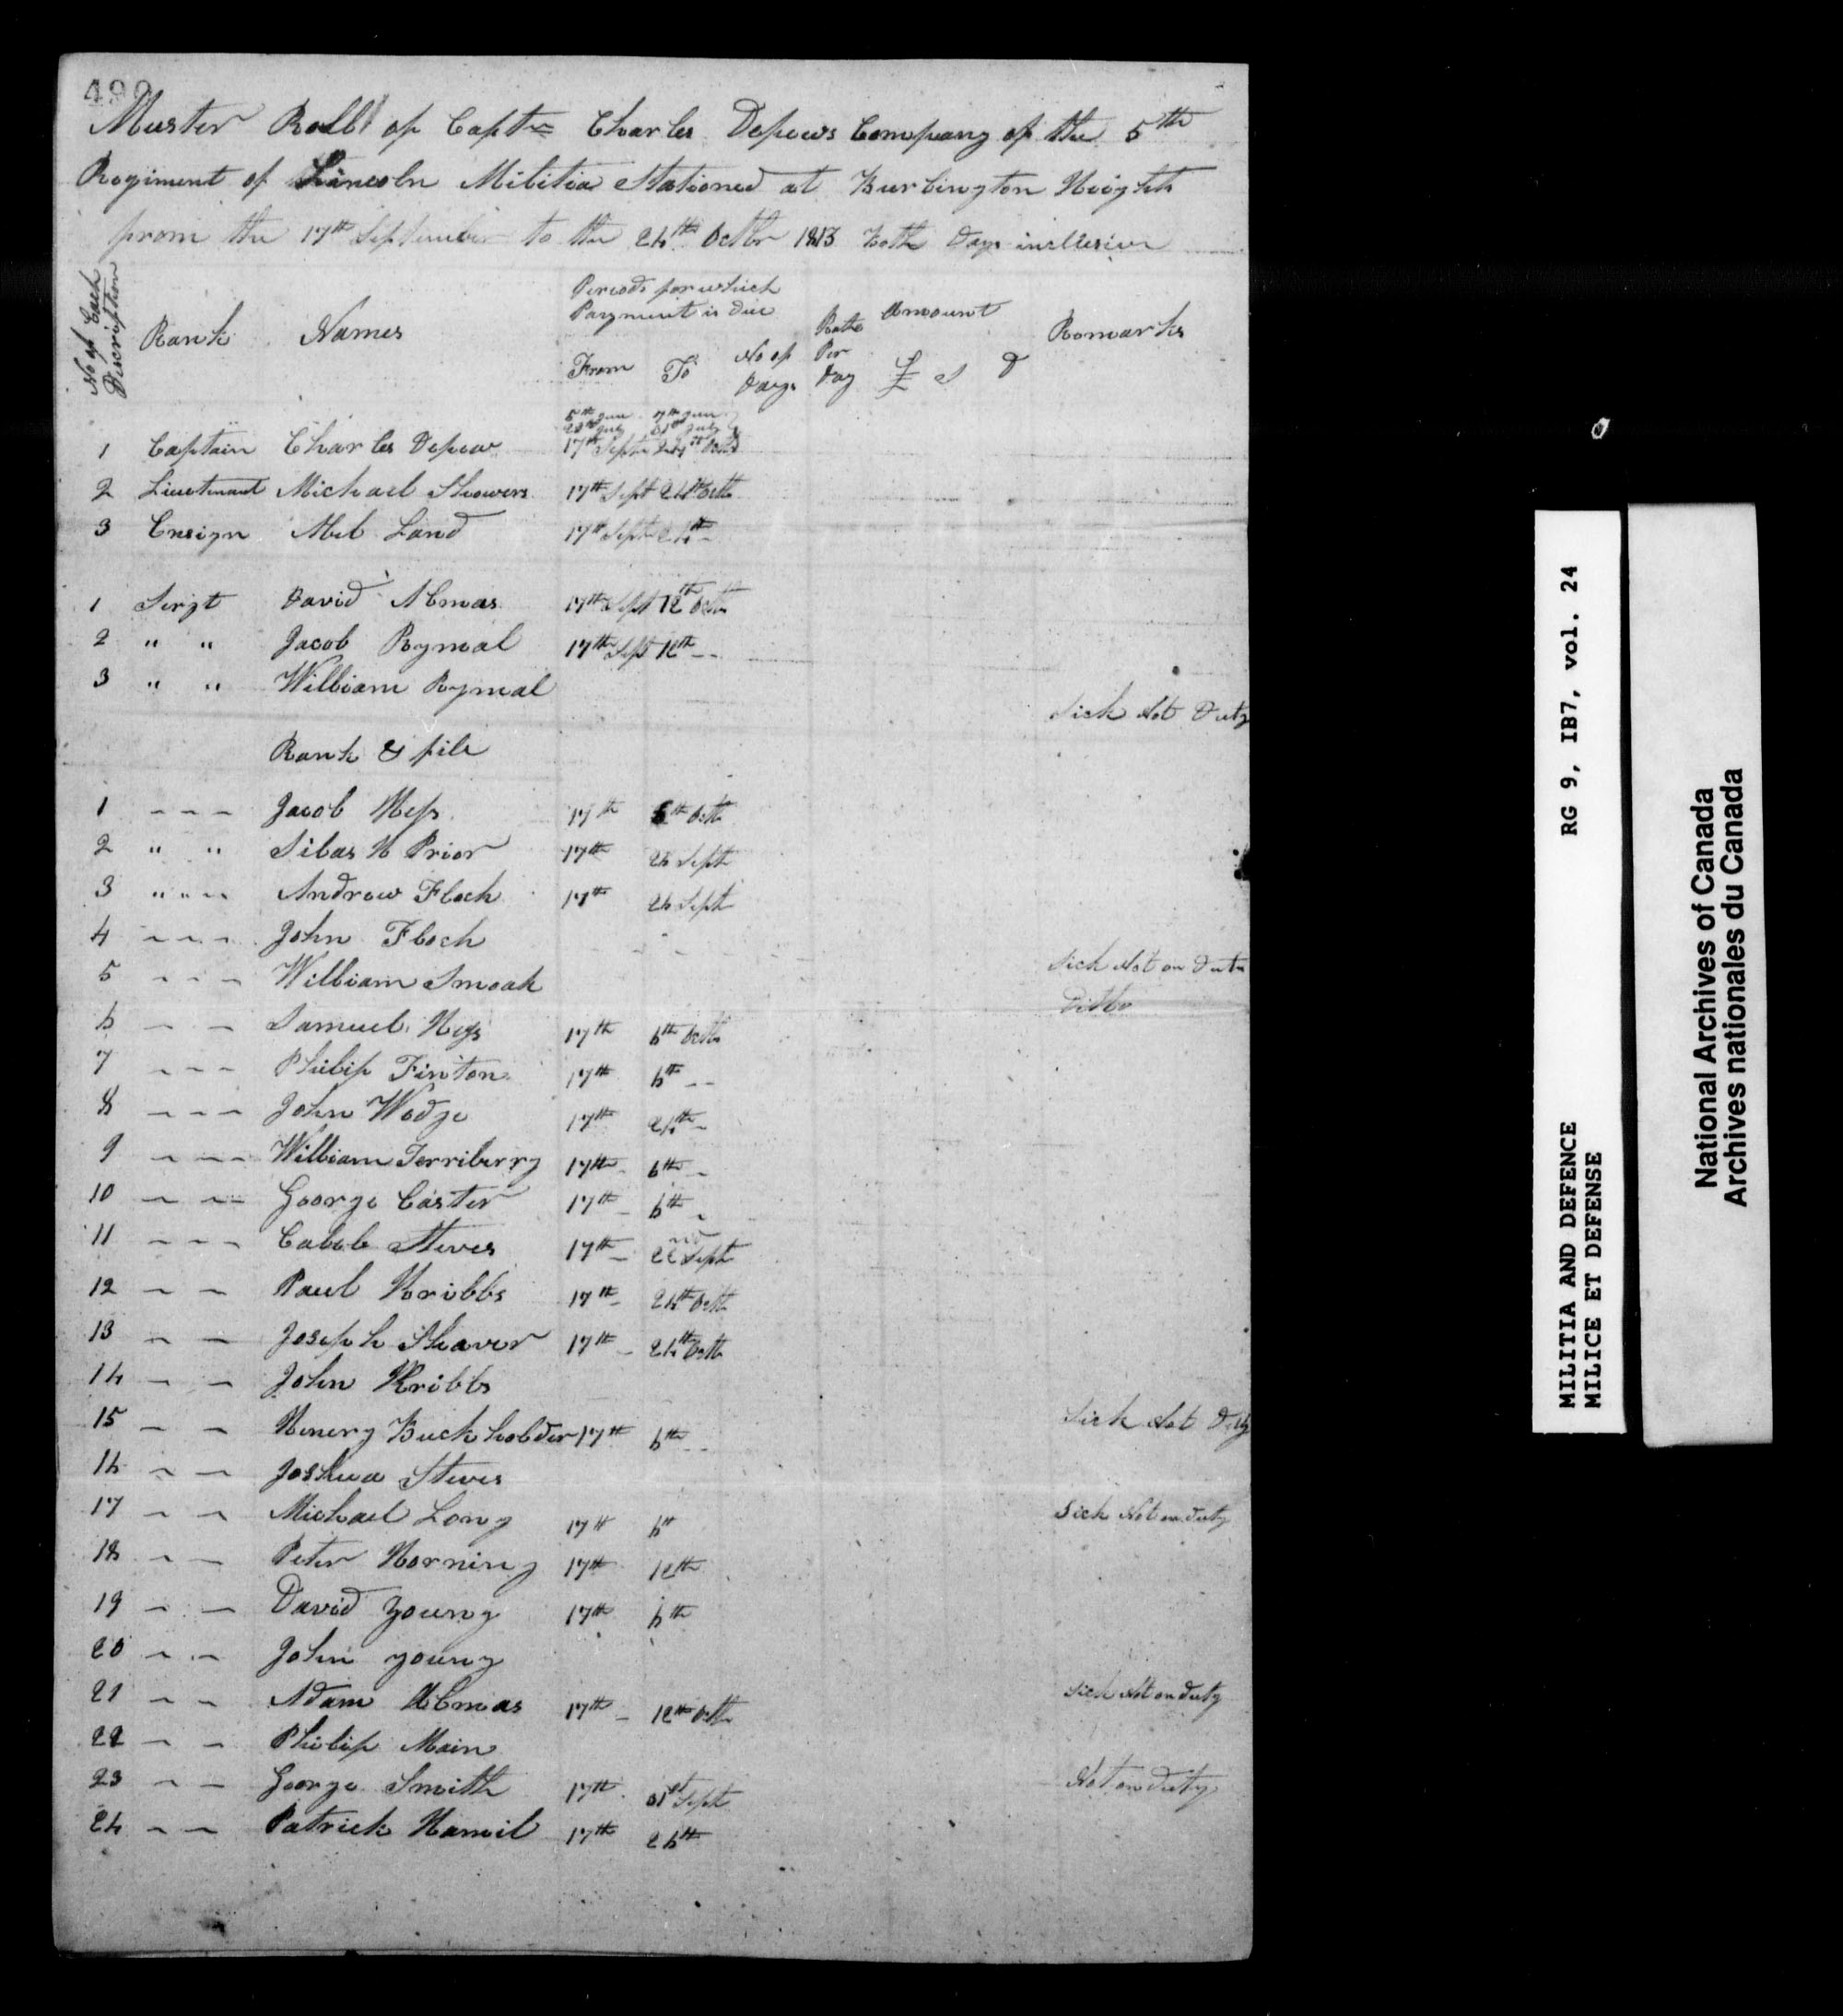 499
Muster Roll of Captn Charles Depews Company of the 5th
Regiment of Lincoln Militia Stationed at Burlington Heights
from the 17th September to the 24th Octbr 1813 Both Days inclusive
No of Each Discription Rank Names Periods for which Payment is Due From To No of Days Rate Per Day Amount £ S D Remarks
5th Jun 7th Jun
July 31st July
1 Captain Charles Depew 17th Septr 24th Octb
2 Lieutenant Michael Showers 17th Sept 24th Octb
3 Ensign Abel Land 17th Sept 24th -
1 Sergt David Almas 17th Sept 12th Octb
2 " " Jacob Rymal 17th Sept 12th --
3 " " William Rymal Sick Not Duty
Rank & file
1 - - - Jacob Hess 17th 6th Octb
2 " " Silas H Prior 17th 24 Sept
3 " " - - Andrew Flock 17th 24 Sept
4 - - - John Flock Sick Not on Duty
5 - - - William Smoak Ditto
6 - - Samuel Hess 17th 6th Octb
7 - - - Philip Finton 17th 6th --
8 - - - John Wodge 17th 24th -
9 - - - William Terriberry 17th - 6th -
10 - - - George Caster 17th - 6th -
11 - - - Caleb Stives 17th - 22nd Sept
12 - - Paul Kribbs 17th - 24th Octb
13 - - Joseph Shaver 17th - 24th Octb
14 - - John Kribbs Sick Not Duty
15 - - Henery Buckholder 17th 6th --
16 - - Joshua Stives Sick Not on duty
17 - - Michael Long 17th 6th
18 - - Peter Horning 17th 12th
19 - - David Young 17th 6th
20 - - John young Sick Not on duty
21 - - Adam Almas 17th - 12th Octb
22 - - Philip Main Not on Duty
23 - - George Smith 17th Sept
24 - - Patrick Hamil 17th 26th
MILITIA AND DEFENCE RG 9, IB7, vol. 24
MILICE ET DEFENSE
National Archives of Canada
Archives nationales du Canada